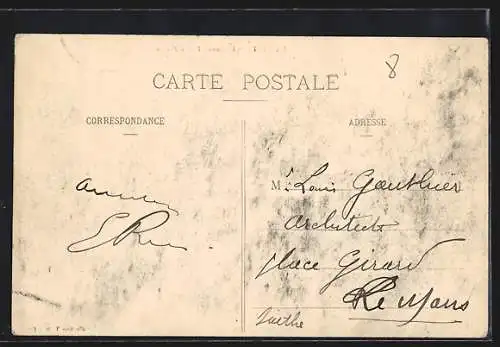 CARTE POSTALE
CORRESPONDANCE
ADRESSE
8
M. Louis Gauthier
architecte
place Girard
Le Mans
Sarthe